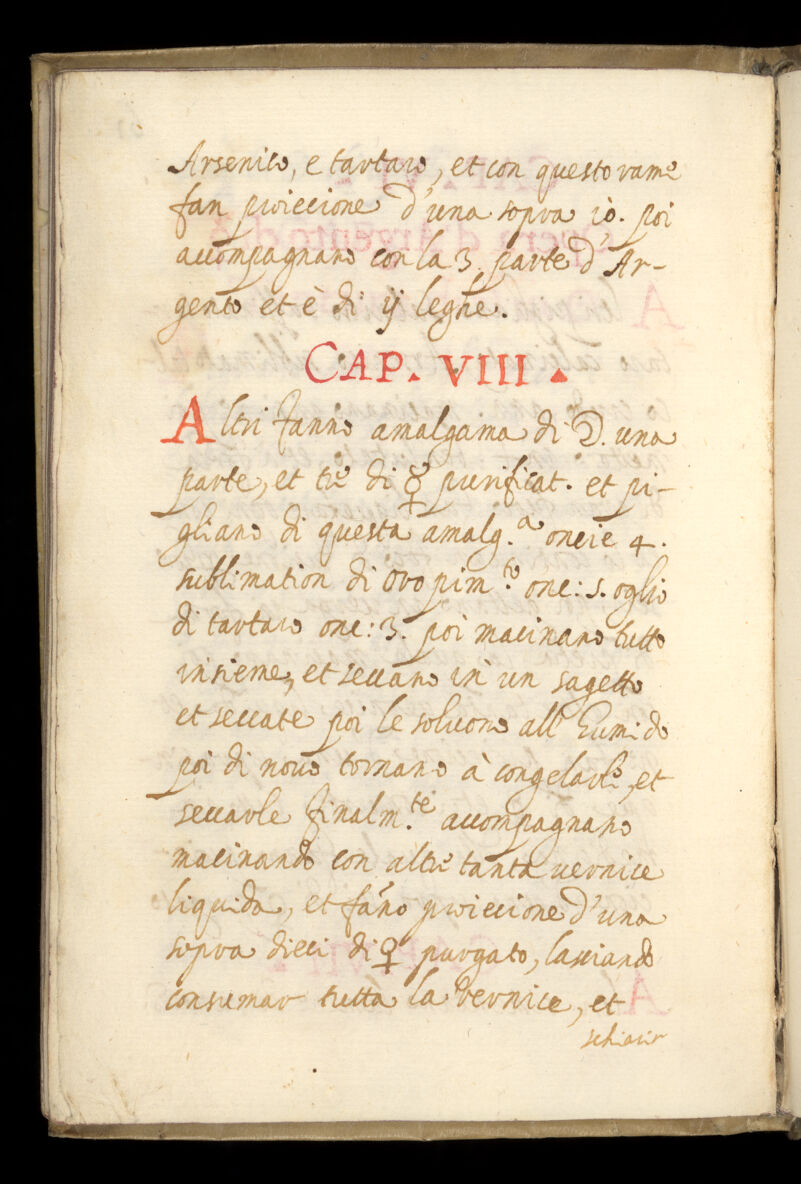 Arsenico, e tartaro, et con questo rame
fan proiecione d'una sopra 10. poi
accompagnano con la 3. parte d'Ar-
gento et è di ij leghe.
CAP. VIII.
Altri fanno amalgama di ☽. una
parte, et tre di ☿ purificat. et pi-
gliano di questa amalg.ª oncie 4.
sublimation di Oropim.to one: 5. oglio
di tartaro one: 3. poi macinano tutto
insieme, et seccano in un sagetto
et seccate poi le soluono all' Eumido
poi di nouo tornano à congelarle, et
seccarle finalm.te accompagnano
macinando con altre tanta uernice
liquida, et fano proiecione d'una
sopra dieci di ♀ purgato, lasciando
consumar tutta la vernice, et
schiarir